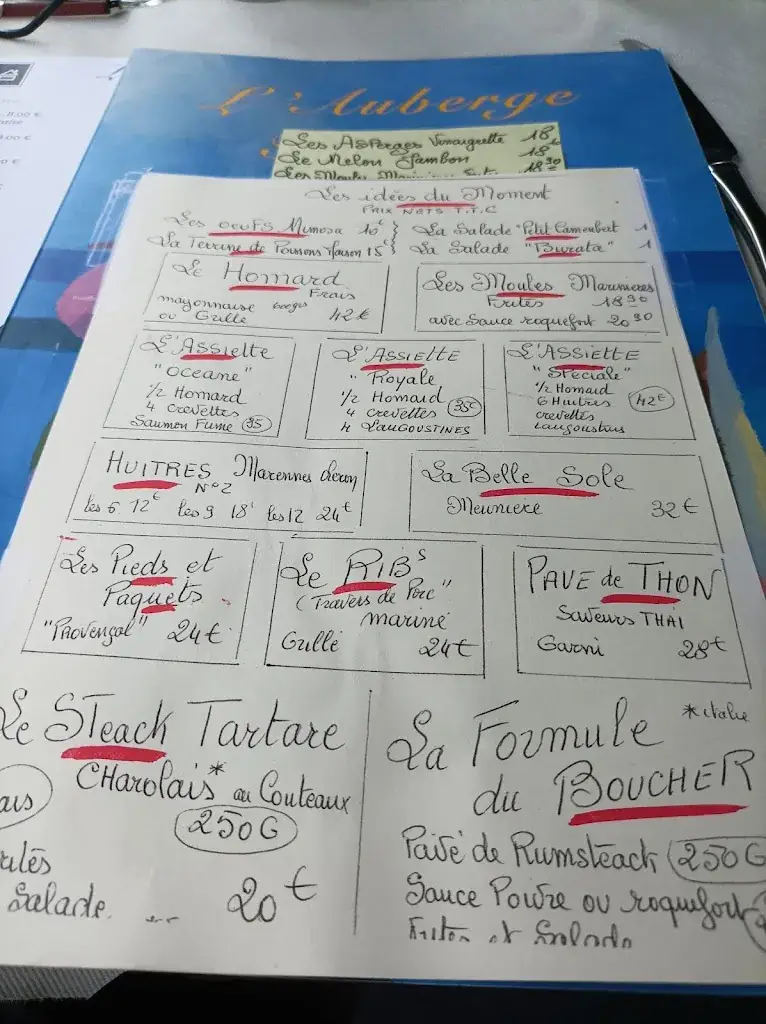 L'Auberge
Les Asperges Vinaigrette 18
Le Melon Jambon 18
Les Moules 18.90
11.00 €
Les idées du Moment
PRIX NETS T.T.C
Les oeufs Mimosa 10€
La Terrine de Poissons Maison 15€
La Salade "Petit Camembert 1
La Salade "Burata" 1
Le Homard
Frais
mayonnaise
ou Grillé 42€
Les Moules Marinieres
Frites 18.90
avec Sauce roquefort 20.90
L'Assiette
"Oceane"
1/2 Homard
4 crevettes
Saumon Fumé 35
L'Assiette
"Royale
1/2 Homard
4 crevettes 35€
4 Langoustines
L'Assiette
"Spéciale"
1/2 Homard
6 Huitres 42€
crevettes
Langoustines
HUITRES Marennes oleron
N°2
les 6 12€ les 9 18€ les 12 24€
La Belle Sole
Meuniere 32€
Les Pieds et
Paquets
"Provençal" 24€
Le RIBS
(Travers de Porc"
mariné
Grillé 24€
PAVE de THON
Saveurs THAI
Garni 28€
Le STeack Tartare
CHarolais* au Couteaux
250G
Salade. 20€
La Formule *italie
du BOUCHER
Pavé de Rumsteack 250G
Sauce Poivre ou roquefort
Frites et Salade